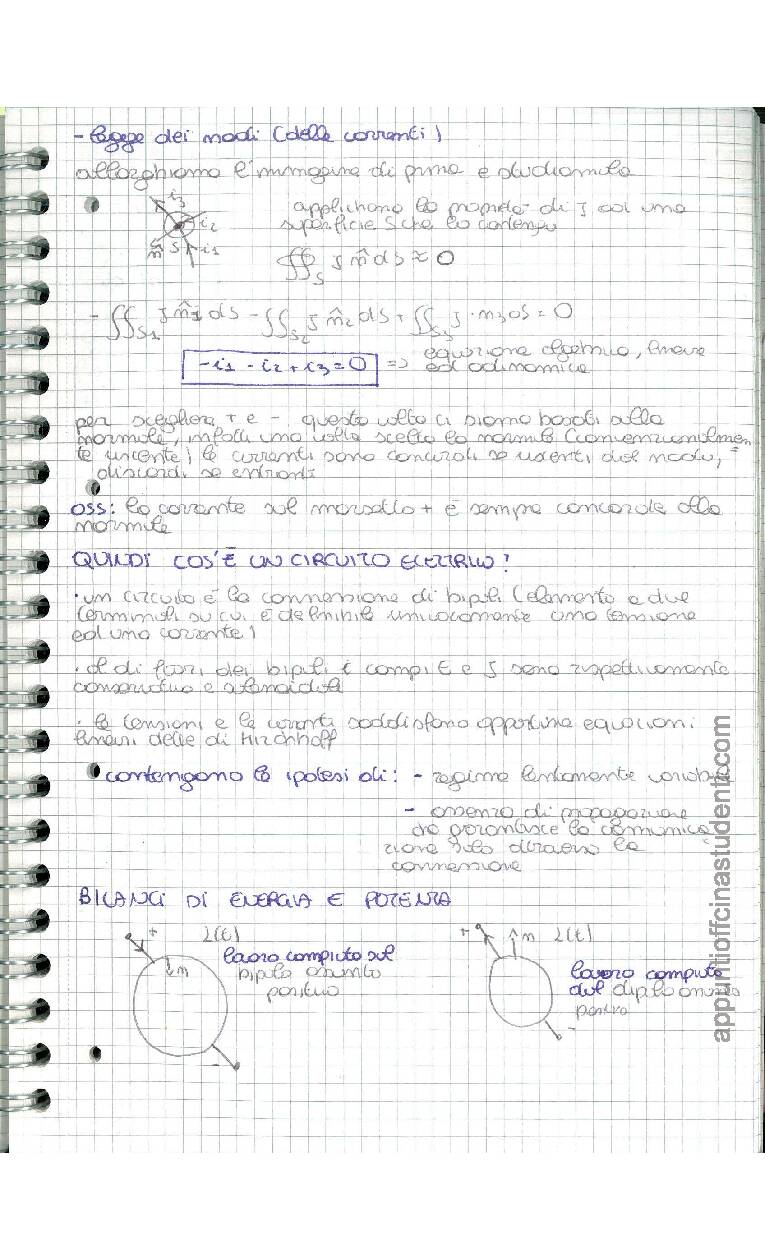 - legge dei nodi (delle correnti)
allarghiamo l'immagine di prima e studiamola
i3
i2
n̂ S i1
applichiamo la proprietà di J ad una
superficie S che lo contenga
∯S J n̂ dS ≈ 0
- ∬S1 J n̂1 dS - ∬S2 J n̂2 dS + ∬S3 J · n3 dS = 0
-i1 - i2 + i3 = 0 => equazione algebrica, lineare
ed adinamica
per scegliere + e - questa volta ci siamo basati sulla
normale, infatti una volta scelta la normale (convenzionalmen-
te uscente) le correnti sono concordi se uscenti dal nodo,
discordi se entranti
oss: la corrente sul morsetto + è sempre concorde alla
normale
QUINDI COS'È UN CIRCUITO ELETTRICO?
· un circuito è la connessione di bipoli (elemento a due
terminali su cui è definibile univocamente una tensione
ed una corrente)
· al di fuori dei bipoli i campi E e J sono rispettivamente
conservativo e solenoidale
· le tensioni e le correnti soddisfano opportune equazioni
lineari dette di Kirchhoff
contengono le ipotesi di: - regime lentamente variabile
- assenza di propagazione
che garantisce la comunica-
zione solo attraverso la
connessione
BILANCI DI ENERGIA E POTENZA
+ L(t)
n
lavoro compiuto sul
bipolo assunto
positivo
+ n̂ L(t)
lavoro compiuto
dal bipolo assunto
positivo
-
appuntioffcinastudenti.com